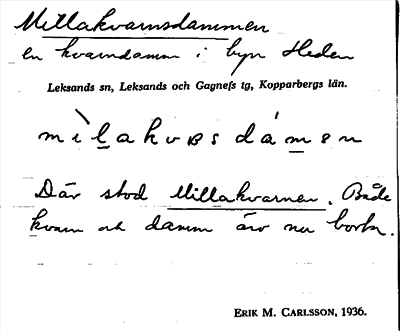 Millakvarnsdammen
en kvarndamm i byn Heden
Leksands sn, Leksands och Gagnefs tg, Kopparbergs län.
mìlakvꞵs dámən
Där stod Millakvarnen. Både
kvarn och damm äro nu borta.
ERIK M. CARLSSON, 1936.